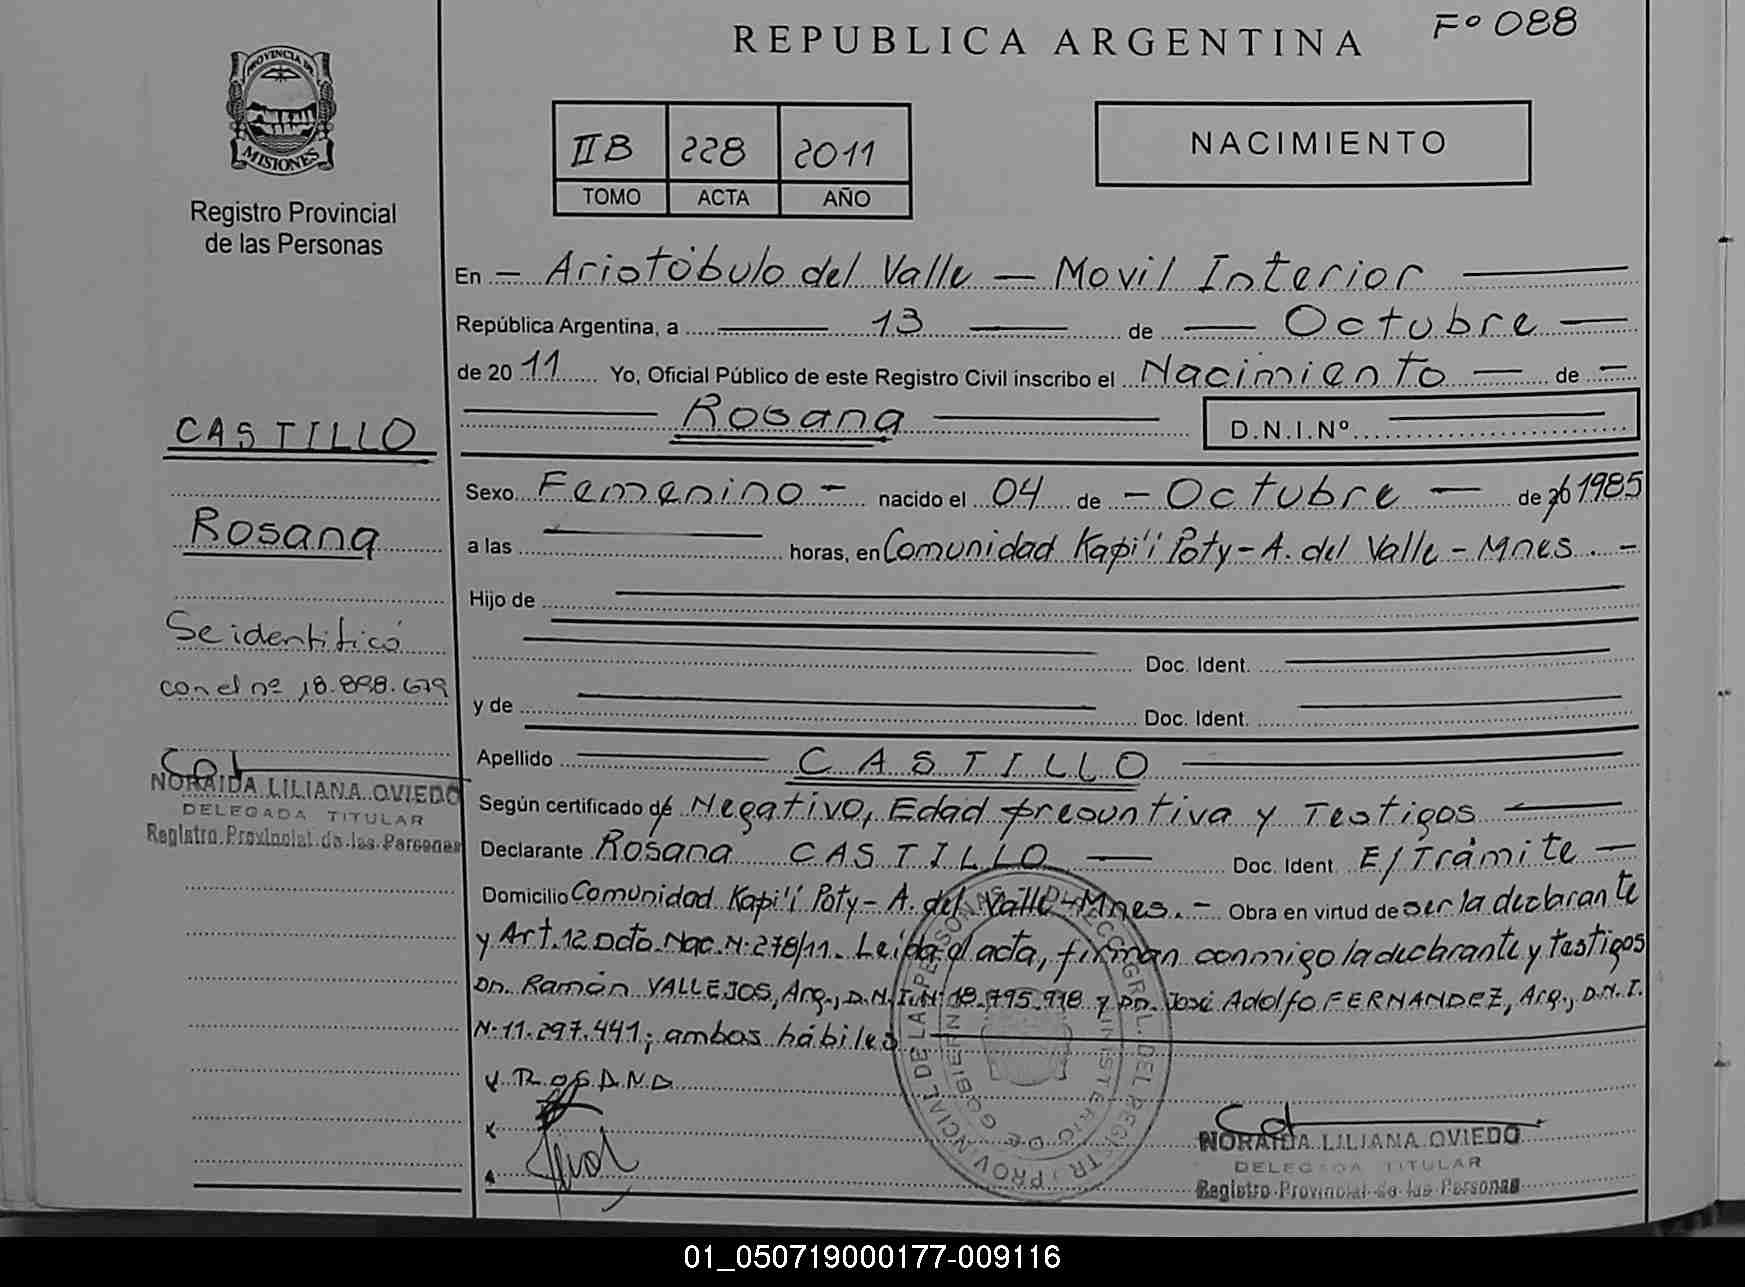 REPUBLICA ARGENTINA
Fº 088
PROVINCIA DE
MISIONES
Registro Provincial
de las Personas
IIB 228 2011
TOMO ACTA AÑO
NACIMIENTO
En — Aristóbulo del Valle — Movil Interior —
República Argentina, a — 13 — de — Octubre —
de 2011 Yo, Oficial Público de este Registro Civil inscribo el Nacimiento — de —
— Rosana — D.N.I.Nº —
CASTILLO
Rosana
Se identificó
con el nº 18.898.679
NORAIDA LILIANA OVIEDO
DELEGADA TITULAR
Registro Provincial de las Personas
Sexo Femenino — nacido el 04 de — Octubre — de 20 1985
a las — horas, en Comunidad Kapi'i Poty - A. del Valle - Mnes. —
Hijo de —
— Doc. Ident. —
y de — Doc. Ident. —
Apellido — CASTILLO —
Según certificado de Negativo, Edad presuntiva y Testigos —
Declarante Rosana CASTILLO — Doc. Ident. E/Trámite —
Domicilio Comunidad Kapi'i Poty - A. del Valle - Mnes. — Obra en virtud de ser la declarante
y Art. 12 Dcto. Nac. Nº 278/11. Leída el acta, firman conmigo la declarante y testigos
Dn. Ramón VALLEJOS, Arg., D.N.I. Nº 18.795.978 y Dn. José Adolfo FERNANDEZ, Arg., D.N.I.
Nº 11.297.441; ambos hábiles —
X ROSANA
X
NORAIDA LILIANA OVIEDO
DELEGADA TITULAR
Registro Provincial de las Personas
01_050719000177-009116